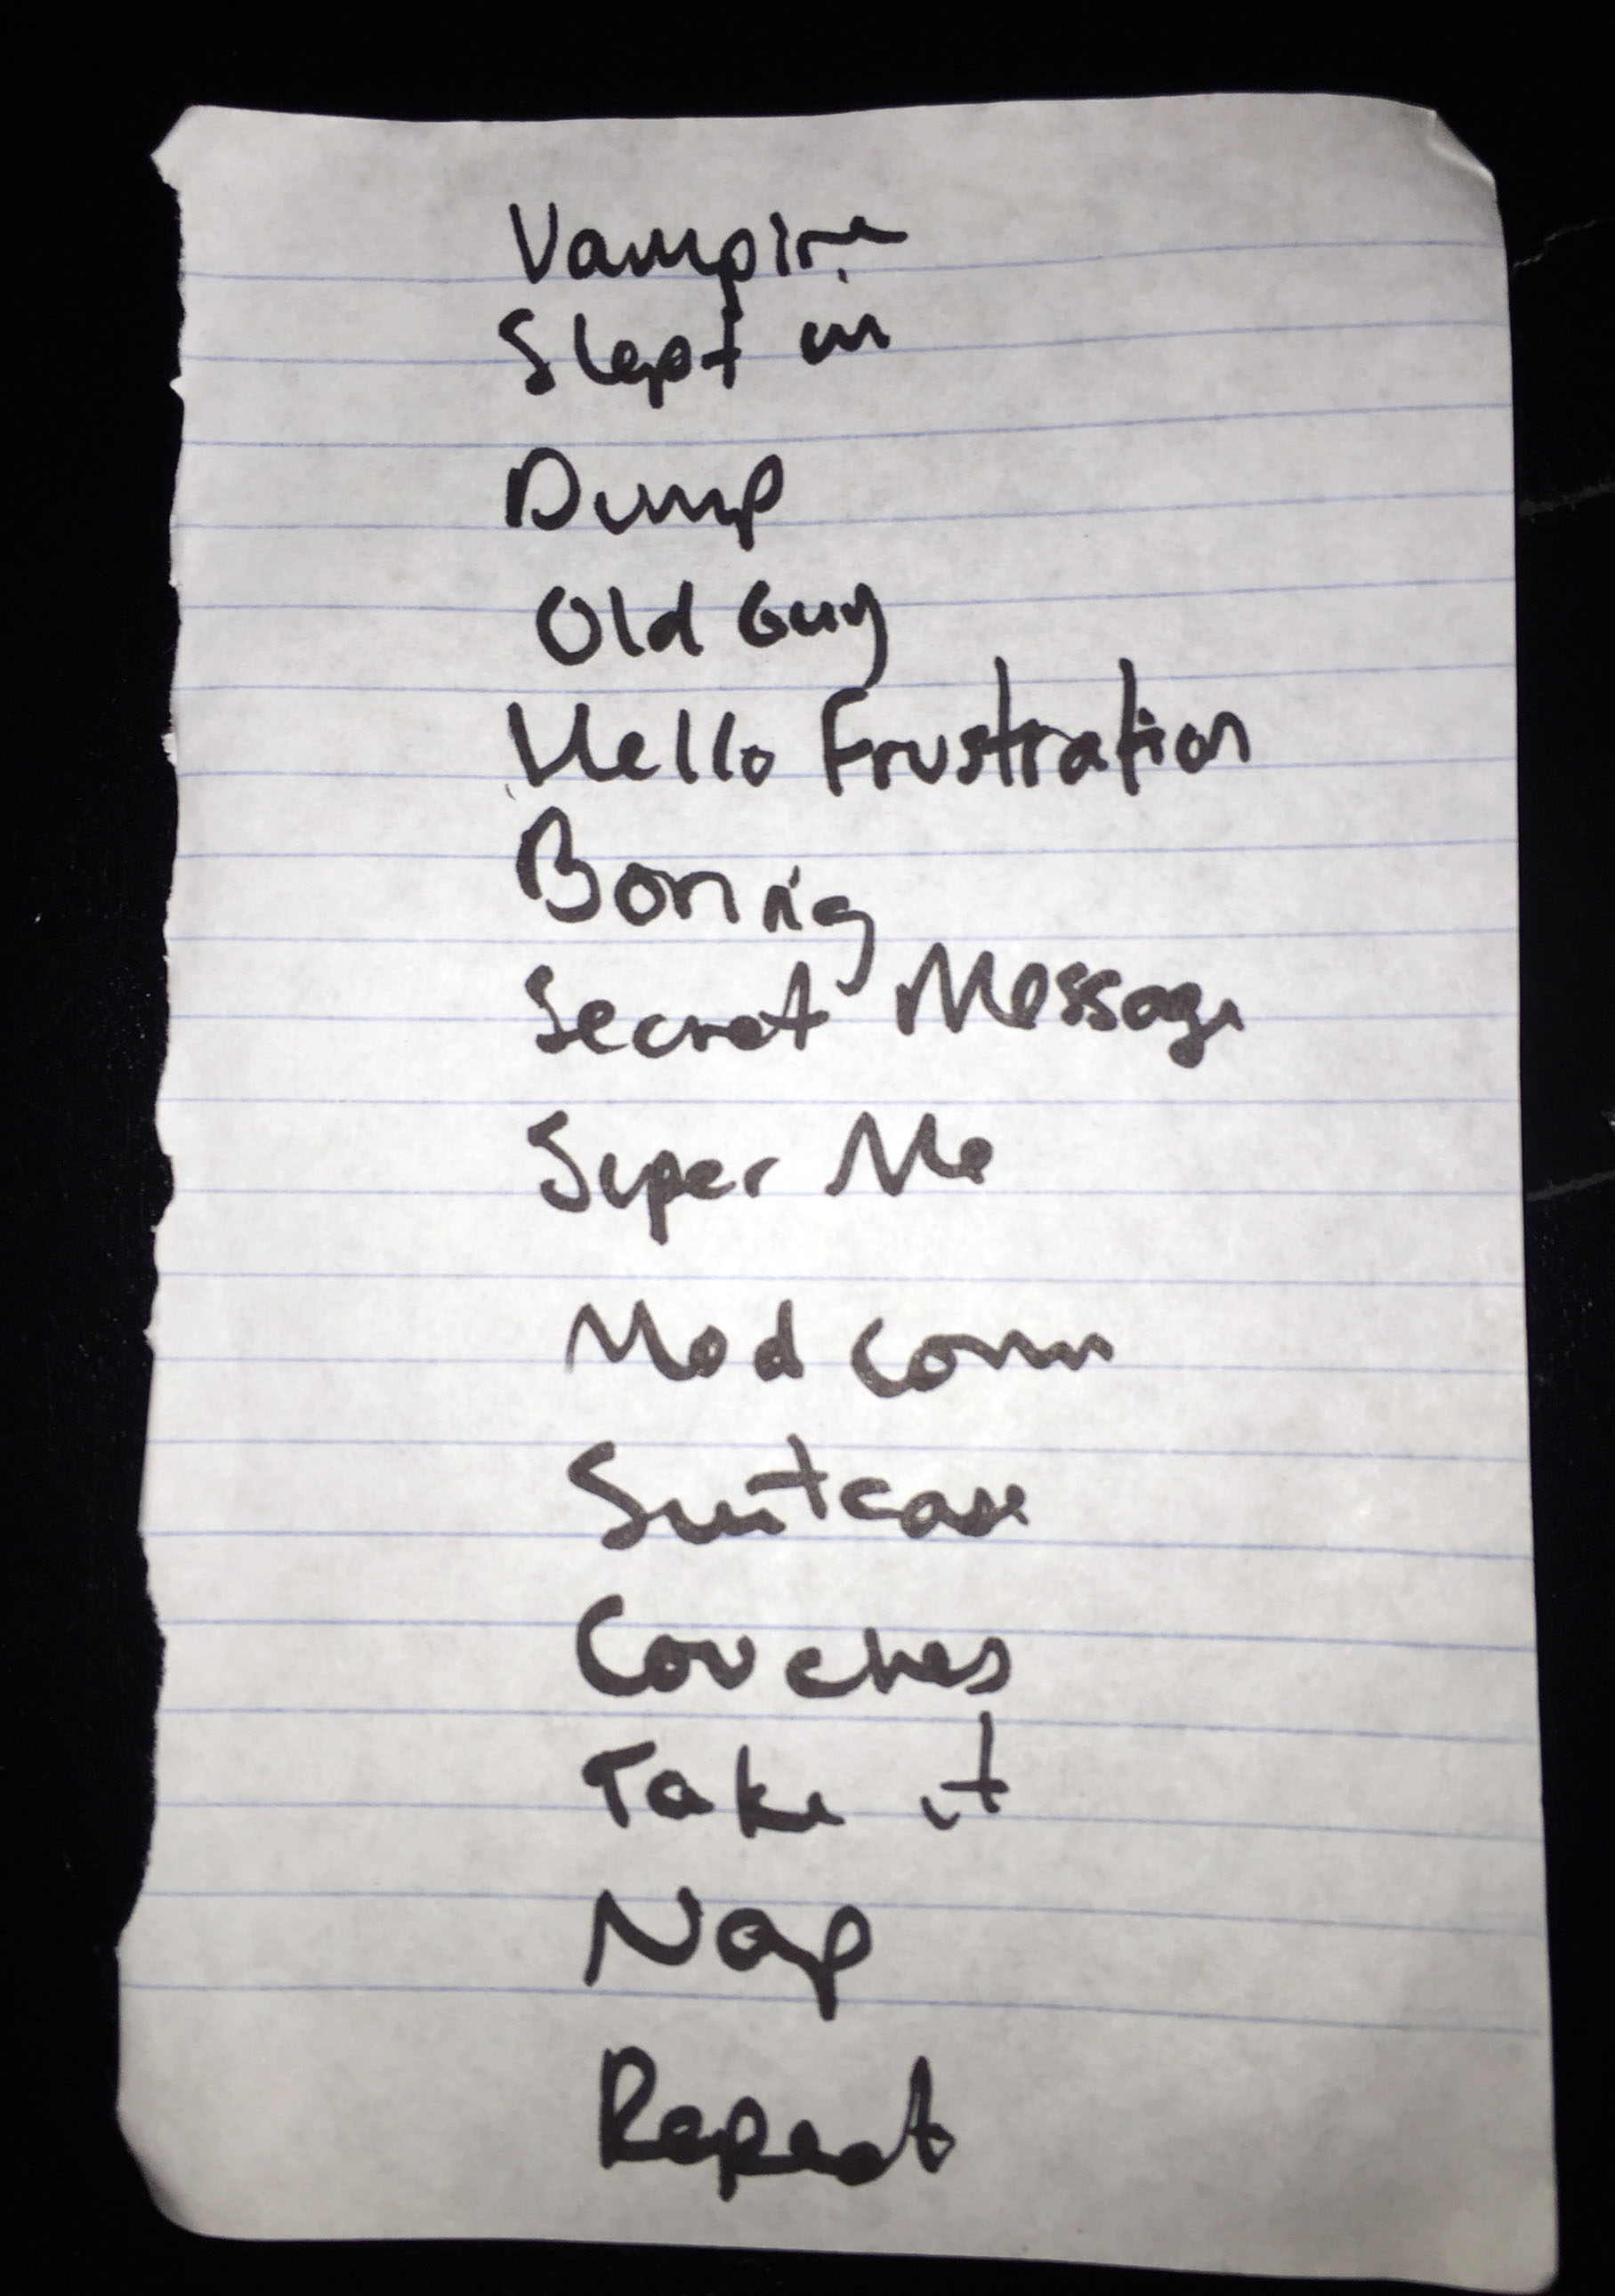 Vampire
Slept in
Dump
Old Guy
Hello Frustration
Boring
Secret Message
Super Me
Mod Conn
Suitcase
Couches
Take it
Nap
Repeat